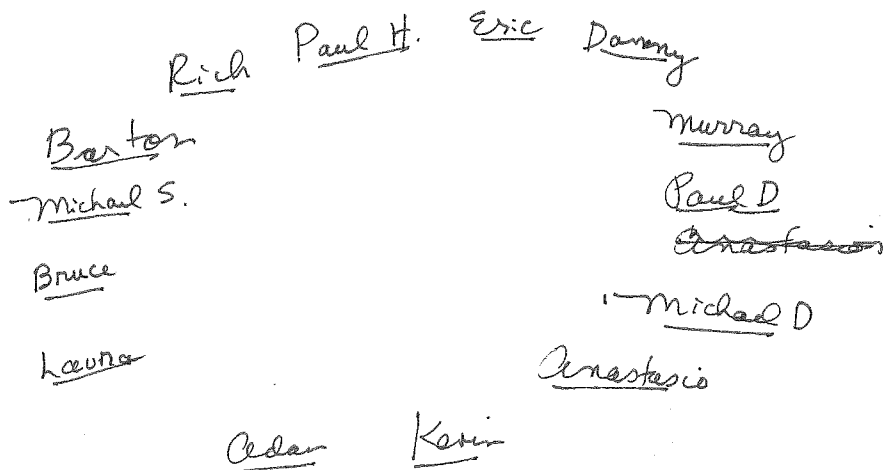 Rich Paul H. Eric Danny
Barton Murray
Michael S. Paul D
Anastasio
Bruce
Michael D
Laura Anastasio
Adam Kevin